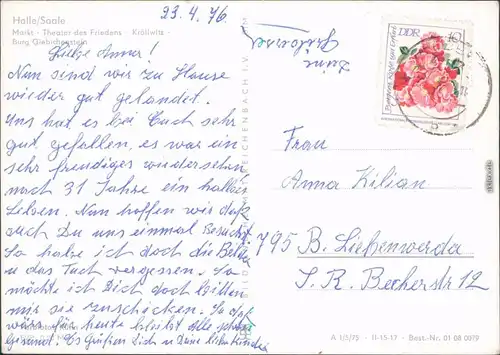 23.4.76
Halle/Saale
Markt · Theater des Friedens · Kröllwitz ·
Burg Giebichenstein
Liebe Anna!
Nun sind wir zu Hause
wieder gut gelandet.
Uns hat es bei Euch sehr
gut gefallen, es war ein
sehr freudiges wiedersehn
nach 31 Jahre ein halbes
Leben. Nun hoffen wir daß
auch Du uns einmal Besuchst.
So habe ich doch die
u das Tuch vergessen. So
möchte ich Dich doch bitten
mir sie zuschicken. So daß
wärs für heute bleibt alle schön
gesund. Es Grüßen Dich u Deine lieben Kinder
Deine
DDR 10
Frau
Anna Kilian
795 B. Liebenwerda
J. R. Becherstr 12
A 1/1/75 II-15-17 Best-Nr. 01 08 0019